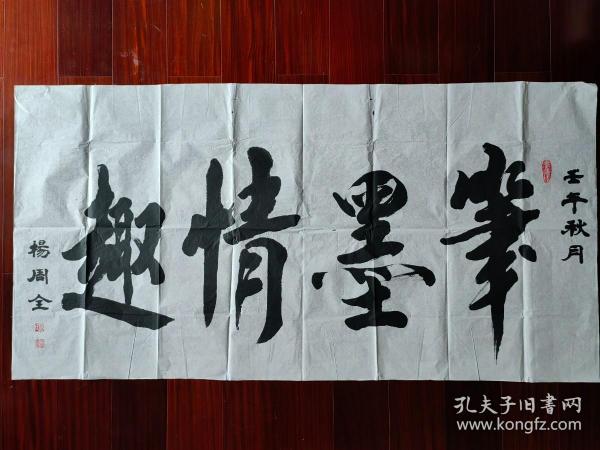 壬午秋月
筆墨情趣
楊周全
孔夫子旧書网
www.kongfz.com